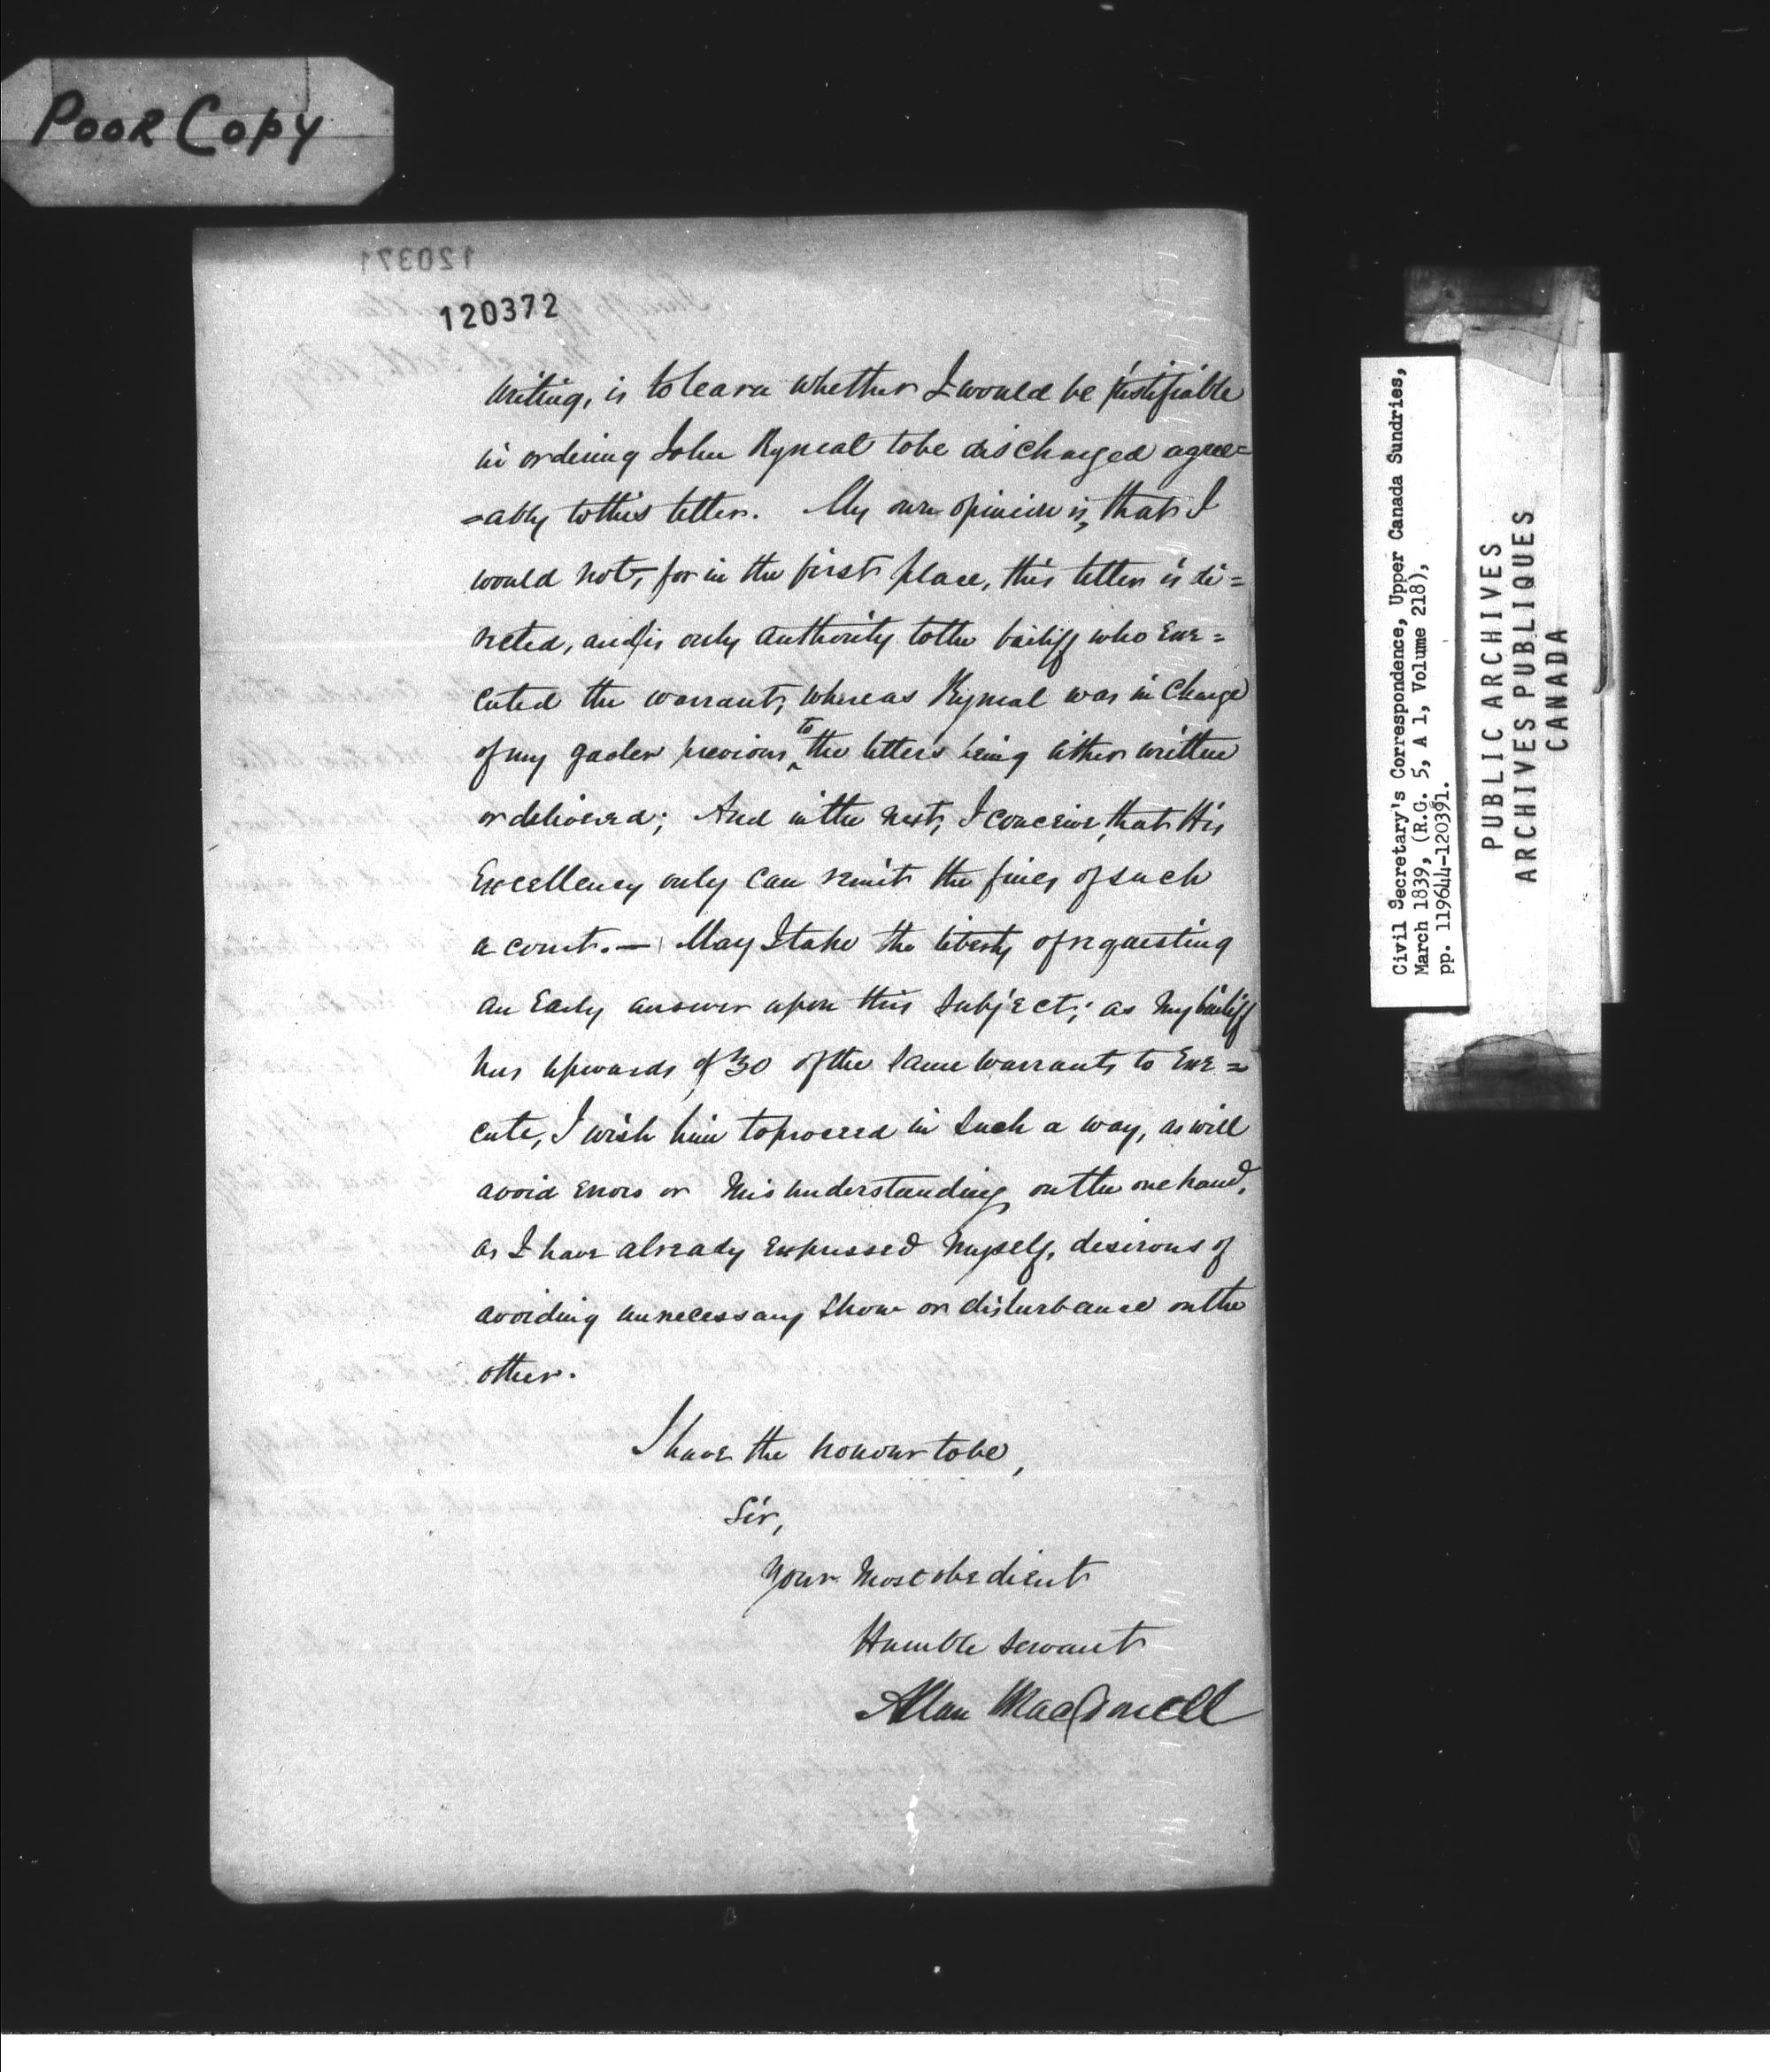 POOR COPY
120371
120372
writing, is to learn whether I would be justifiable
in ordering John Ryneal to be discharged agree=
=ably to this letter. My own opinion is, that I
would not, for in the first place, this letter is di=
rected, and is only authority to the bailiff who Exe=
cuted the warrant, whereas Ryneal was in Charge
of my gaoler previous to the letters being either written
or delivered; And in the next, I conceive, that His
Excellency only can remit the fines of such
a court. — May I take the liberty of requesting
an Early answer upon this Subject; as my bailiff
has upwards of 30 of the same warrants to Exe=
cute, I wish him to proceed in such a way, as will
avoid errors or misunderstanding on the one hand,
as I have already Expressed myself, desirous of
avoiding unnecessary show or disturbance on the
other.
I have the honour to be,
Sir,
Your most obedient
Humble servant
Allan MacDonell
Civil Secretary's Correspondence, Upper Canada Sundries,
March 1839, (R.G. 5, A 1, Volume 218),
pp. 119644-120391.
PUBLIC ARCHIVES
ARCHIVES PUBLIQUES
CANADA